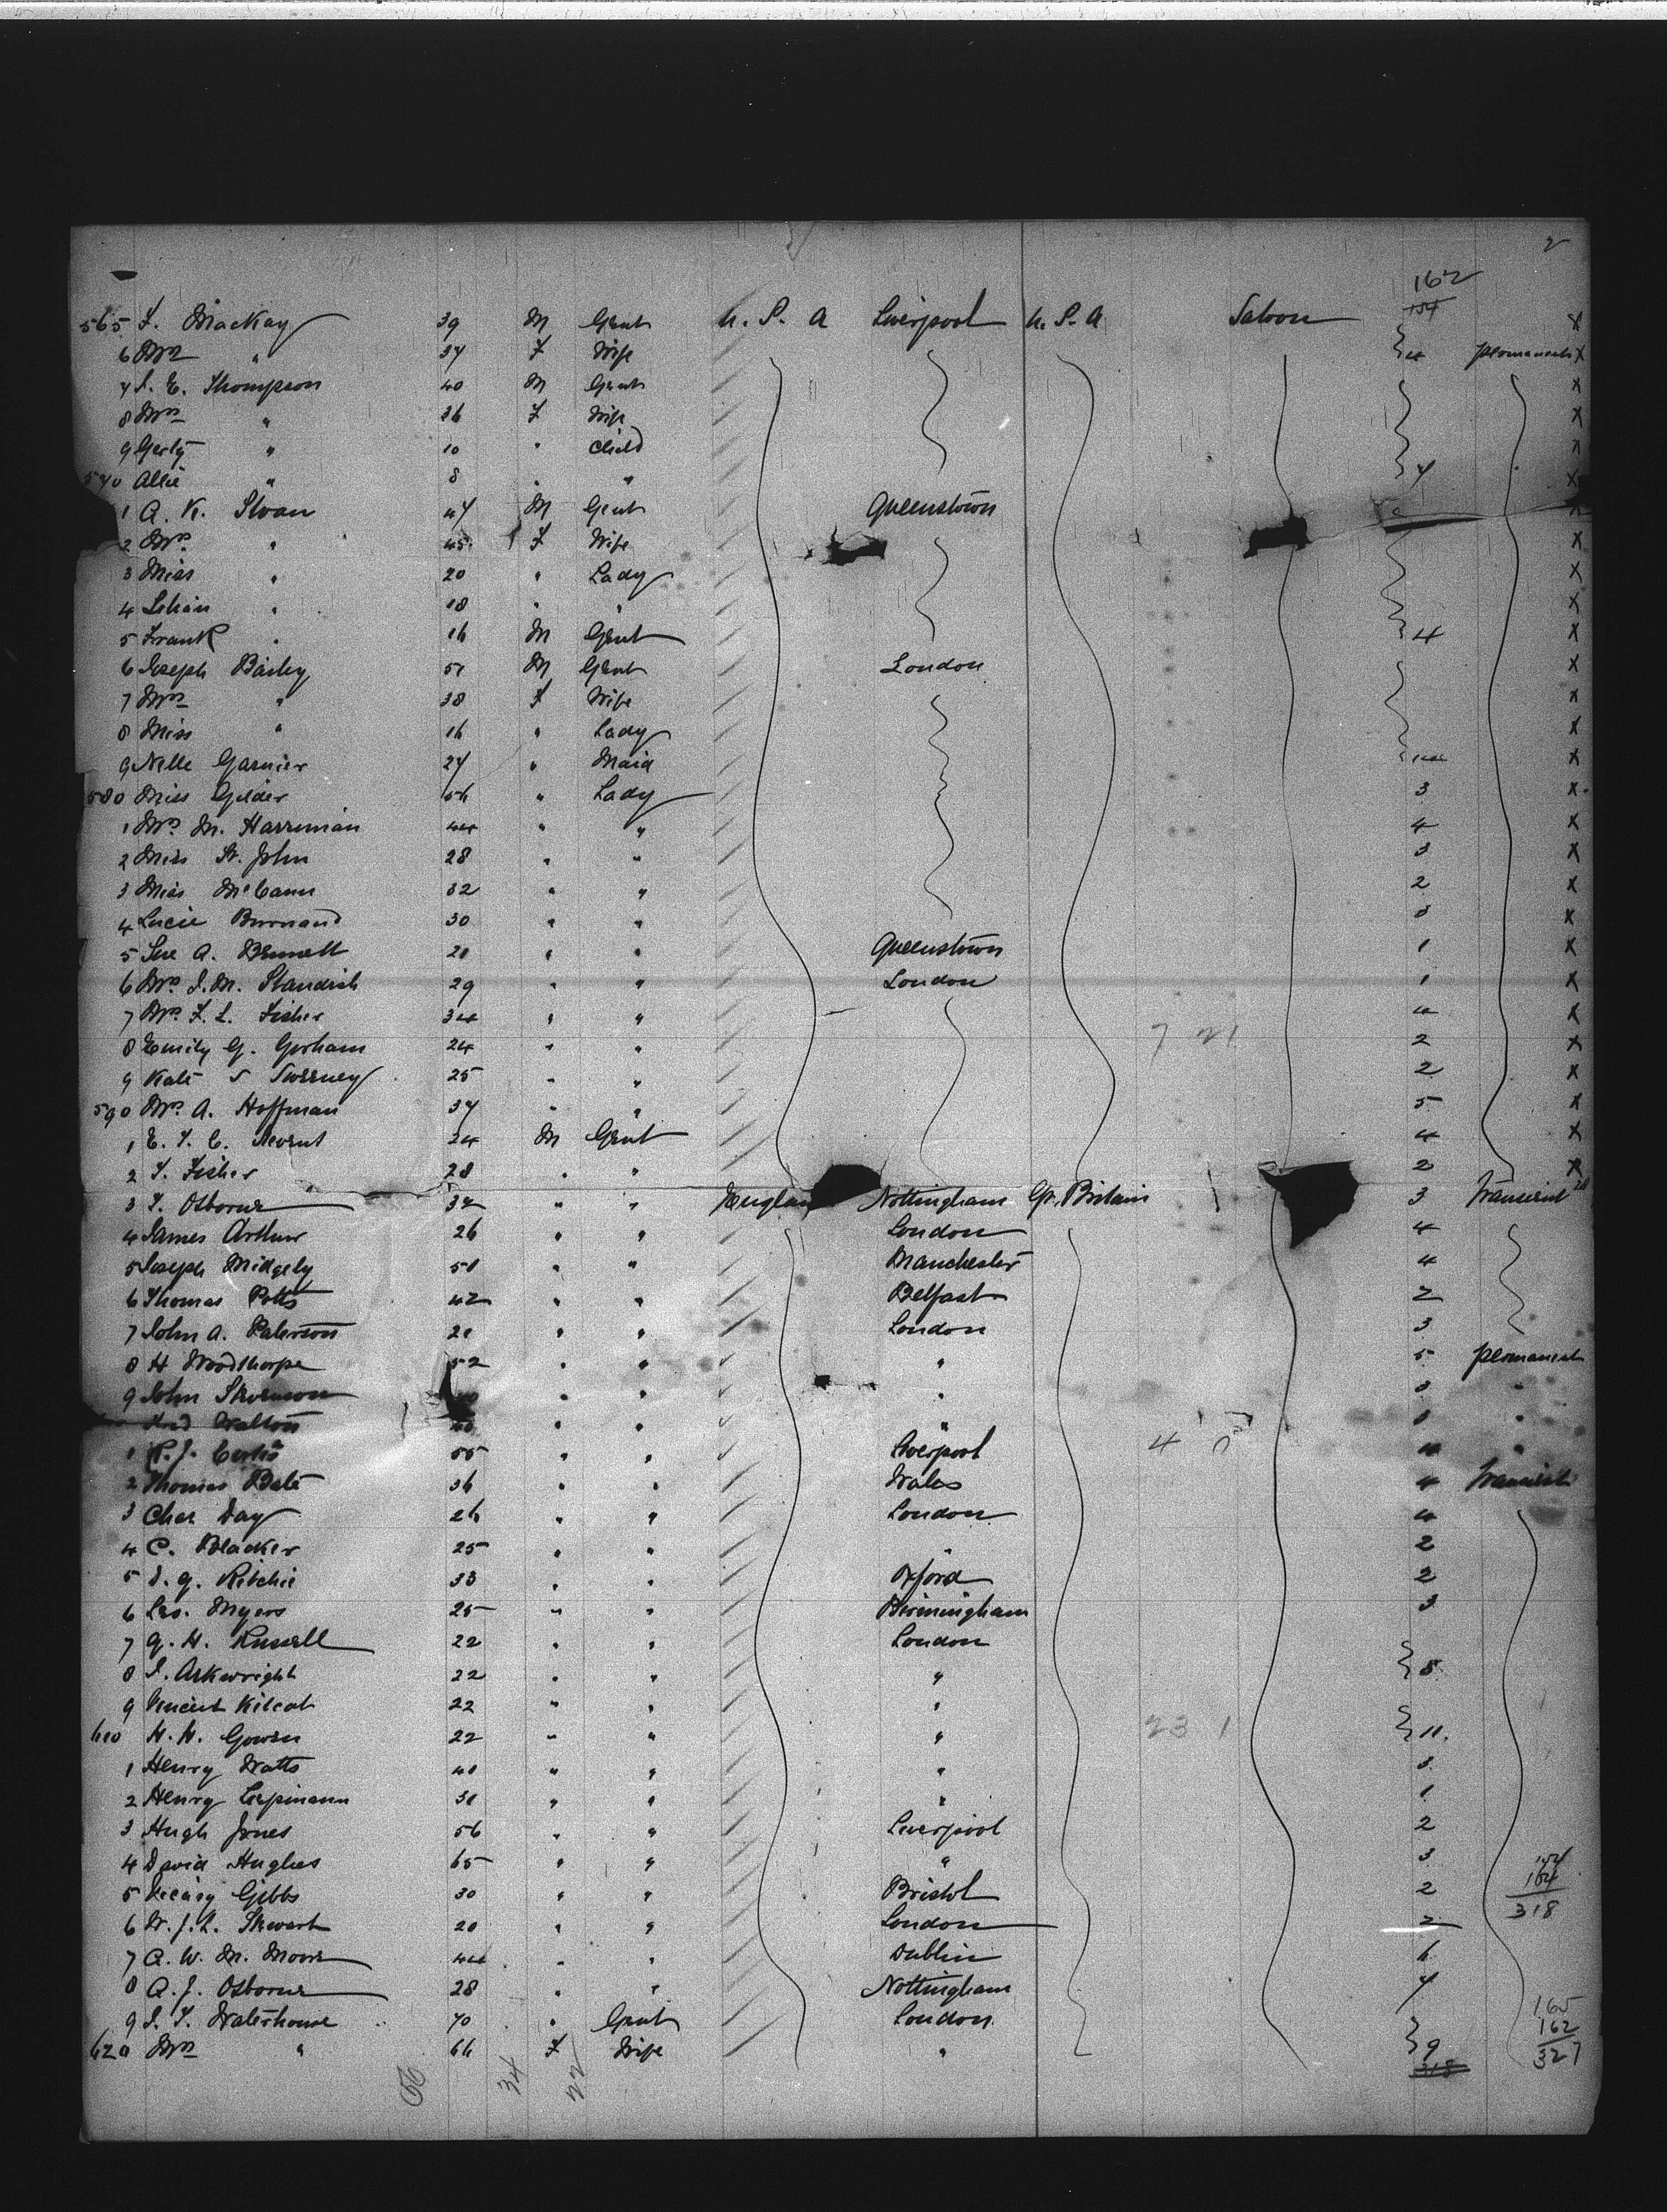 2
162
154
565 F. Mackay 39 M Gent U. S. A Liverpool U. S. A Saloon X
6 Mrs " 37 F Wife 4 permanent X
7 J. E. Thompson 40 M Gent X
8 Mrs " 36 F Wife X
9 Gerty " 10 " Child X
570 Allie " 8 " " 7 X
1 A. K. Sloan 47 M Gent Queenstown X
2 Mrs " 45 F Wife X
3 Miss " 20 " Lady X
4 " 18 " " X
5 Frank " 16 M Gent 4 X
6 Joseph Bailey 51 M Gent London X
7 Mrs " 38 F Wife X
8 Miss " 16 " Lady X
9 Nelle Garnier 27 " Maid X
580 Miss Gilder 56 " Lady 3 X
1 Mrs M. Harriman 44 " " 4 X
2 Miss St. John 28 " " 3 X
3 Miss McCann 32 " " 2 X
4 Lucie Burnand 30 " " 3 X
5 Sue A. Bennett 21 " " Queenstown 1 X
6 Mrs J. M. Standish 29 " " London 1 X
7 Mrs F. L. Fisher 34 " " 4 X
7 21
8 Emily G. Gorham 24 " " 2 X
9 Kate S Sweeney 25 " " 2 X
590 Mrs A. Hoffman 37 " " 5 X
1 E. T. C. 24 M Gent 4 X
2 T. Fisher 28 " " 2 X
3 T. Osborne 32 " " England Nottingham Gt. Britain 3 Transient
4 James Arthur 26 " " London 4
5 Joseph Midgely 51 " " Manchester 4
6 Thomas Potts 42 " " Belfast 2
7 John A. Paterson 21 " " London 3
8 H Woodthorpe 52 " " " 5 permanent
9 John Stevenson " " " 3 "
Fred Walton " " " 1 "
1 R. J. Curtis 55 " " Liverpool 4 "
4 0
2 Thomas Bate 36 " " Wales 4 Transient
3 Chas Day 26 " " London 4
4 C. Blacker 25 " " " 2
5 D. G. Ritchie 33 " " Oxford 2
6 Leo. Myers 25 " " Birmingham 3
7 G. H. Russell 22 " " London
8 J. Arkwright 22 " " " 5
9 Vincent Kilcat 22 " " "
610 H. H. Gowen 22 " " " 11
23 1
1 Henry Watts 40 " " " 3
2 Henry 31 " " " 1
3 Hugh Jones 56 " " Liverpool 2
4 David Hughes 65 " " " 3
154
164
318
5 Vicary Gibbs 30 " " Bristol 2
6 W. J. L. Stewart 20 " " London 2
7 A. W. M. Moore 44 " " Dublin 6
8 A. J. Osborne 28 " " Nottingham 7
9 J. T. Waterhouse 70 " Gent London
620 Mrs " 66 F Wife " 9
165
162
327
318
56 34 22